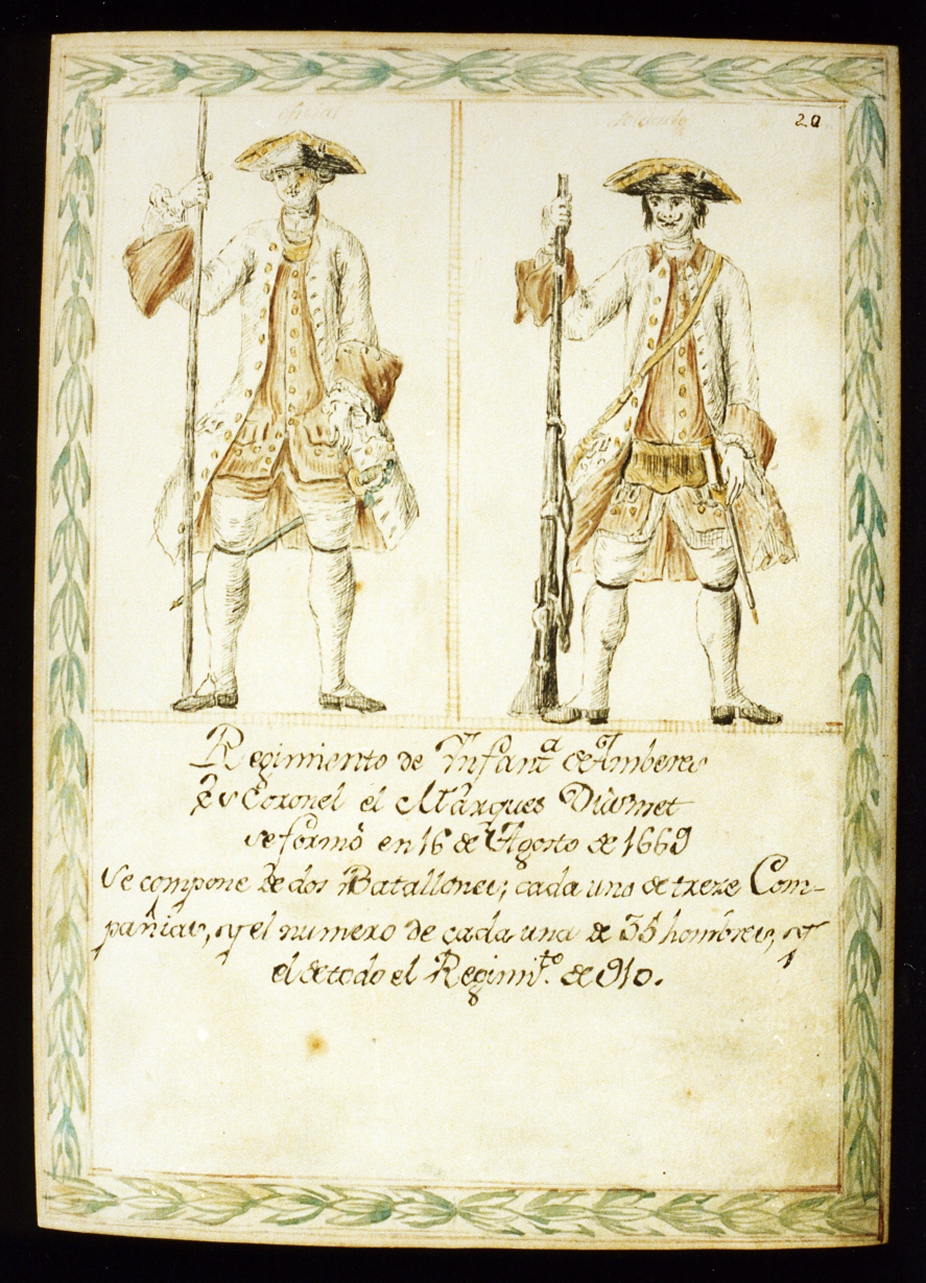 oficial
soldado
20
Regimiento de Infantª de Amberes
Su Coronel el Marques
se formò en 16 de Agosto de 1669
Se compone de dos Batallones; cada uno de treze Com-
pañias, y el numero de cada una de 35 hombres, y
el de todo el Regimito. de 910.